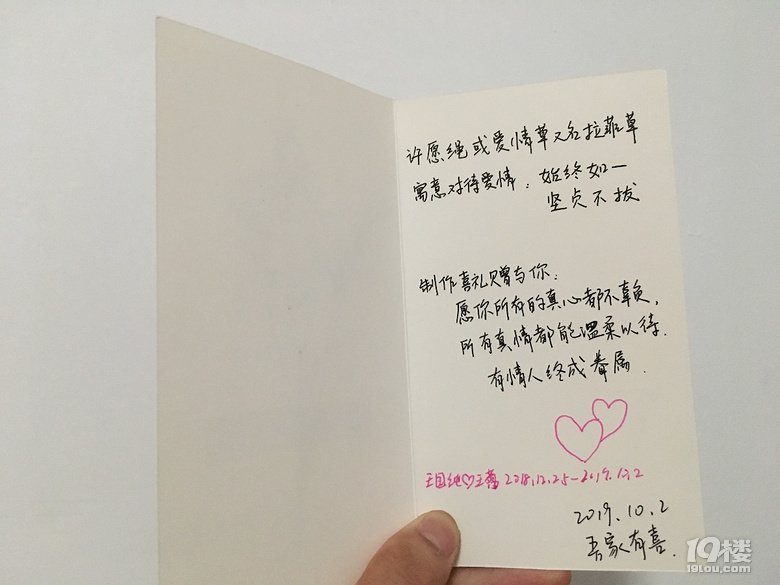 许愿绳或爱情草又名拉菲草
寓意对待爱情：始终如一
坚贞不拔
制作喜礼赠与你：
愿你所有的真心都不辜负，
所有真情都能温柔以待.
有情人终成眷属.
王国纯♡王蕾 2018.12.25-2019.10.2
2019.10.2
吾家有喜.
19楼
19lou.com